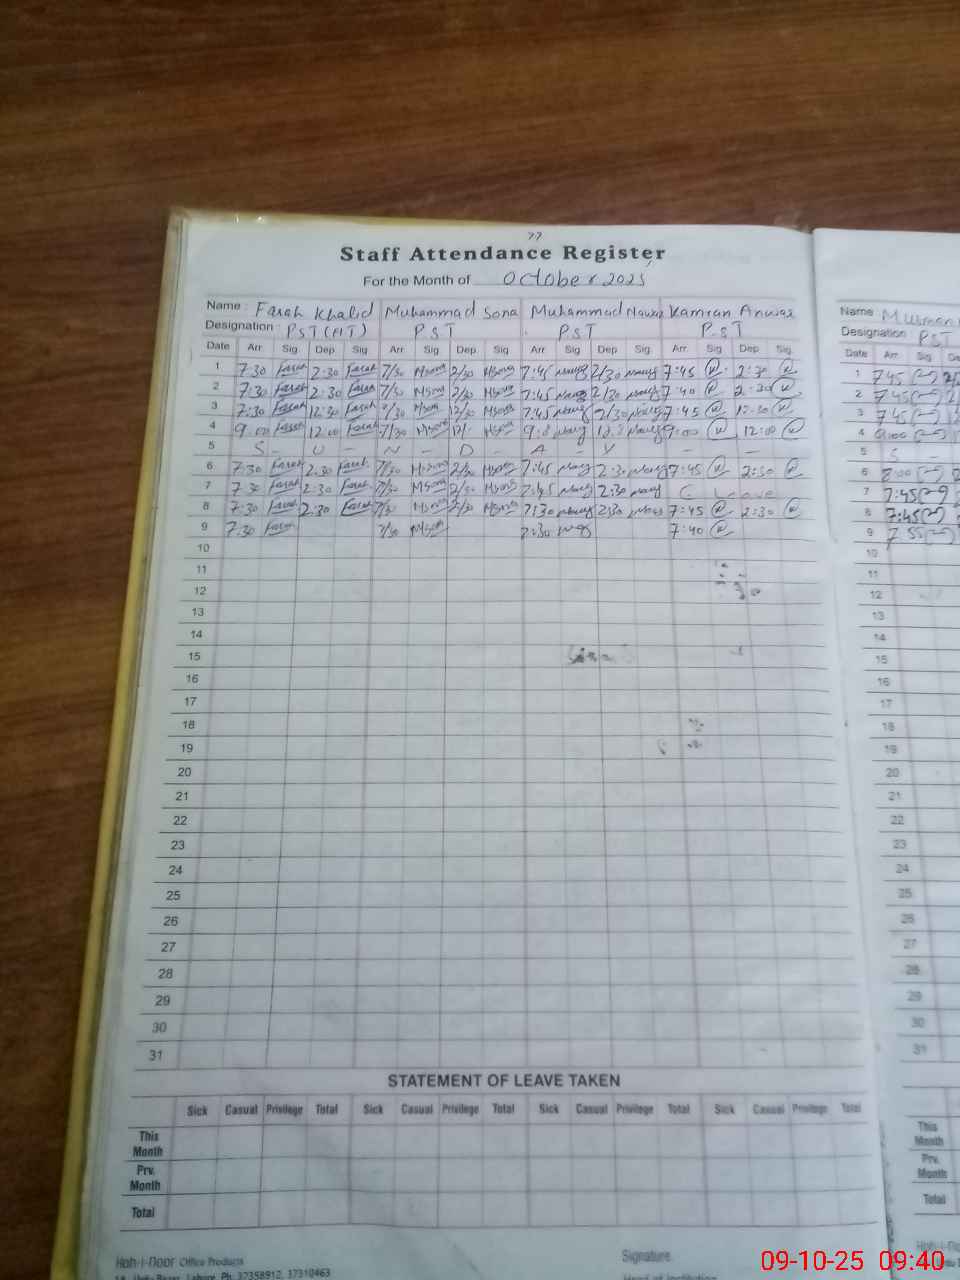 77
Staff Attendance Register
For the Month of October 2025
Name : Farah Khalid Muhammad Sona Muhammad Nawaz Kamran Anwar
Designation : PST (HT) PST PST PST
Date Arr. Sig. Dep. Sig. Arr. Sig. Dep. Sig. Arr. Sig. Dep. Sig. Arr. Sig. Dep. Sig.
1 7:30 Farah 2:30 Farah 7/30 MSona 2/30 MSona 7:45 Nawaz 2/30 Nawaz 7:45 2:30
2 7:30 Farah 2:30 Farah 7/30 MSona 2/30 MSona 7:45 Nawaz 2/30 Nawaz 7:40 2:30
3 7:30 Farah 12:30 Farah 7/30 MSona 12/30 MSona 7:45 Nawaz Nawaz 7:45 12:30
4 9:00 Farah 12:00 Farah MSona MSona Nawaz Nawaz 9:00 12:00
5 S - U - N - D - A - Y - - -
6 7:30 Farah 2:30 Farah 7/30 MSona 2/30 MSona 7:45 Nawaz 2:30 Nawaz 7:45 2:30
7 7:30 Farah 2:30 Farah 7/30 MSona 2/30 MSona 7:45 Nawaz 2:30 Nawaz C Leave
8 7:30 Farah 2:30 Farah 7/30 MSona 2/30 MSona 7:30 Nawaz 2:30 Nawaz 7:45 2:30
9 7:30 Farah 7/30 MSona 7:30 Nawaz 7:40
10
11
12
13
14
15
16
17
18
19
20
21
22
23
24
25
26
27
28
29
30
31
STATEMENT OF LEAVE TAKEN
Sick Casual Privilege Total Sick Casual Privilege Total Sick Casual Privilege Total Sick Casual Privilege Total
This Month
Prv. Month
Total
Hoh-i-Noor Office Products
Lahore. Ph: 37358912, 37310463
Signature
Head of Institution
Name
Designation : PST
Date Arr. Sig. Dep.
1 7:45
2 7:45
3 7:45
4 9:00
5 S -
6 8:00
7 7:45
8 7:45
9 7:55
10
11
12
13
14
15
16
17
18
19
20
21
22
23
24
25
26
27
28
29
30
31
This Month
Prv. Month
Total
09-10-25 09:40